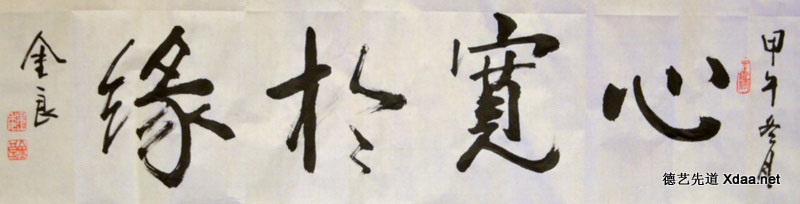 甲午冬月
心寬於緣
金良
德艺先道 Xdaa.net